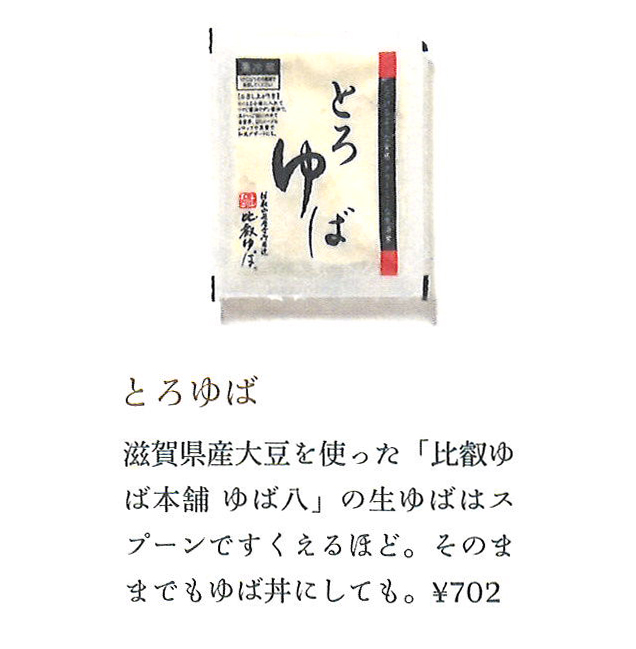 要冷蔵
とろ
ゆば
比叡ゆば
とろゆば
滋賀県産大豆を使った「比叡ゆ
ば本舗 ゆば八」の生ゆばはス
プーンですくえるほど。そのま
までもゆば丼にしても。¥702